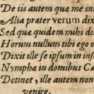 De iis autem qua me in
Alia prater verum dix
Sed qua quidem nubis d
Horum nullum tibi ego
Dixit ille se ipsum in inf
Nympha in domibus Ca
Detinet, ille autem non
venire.